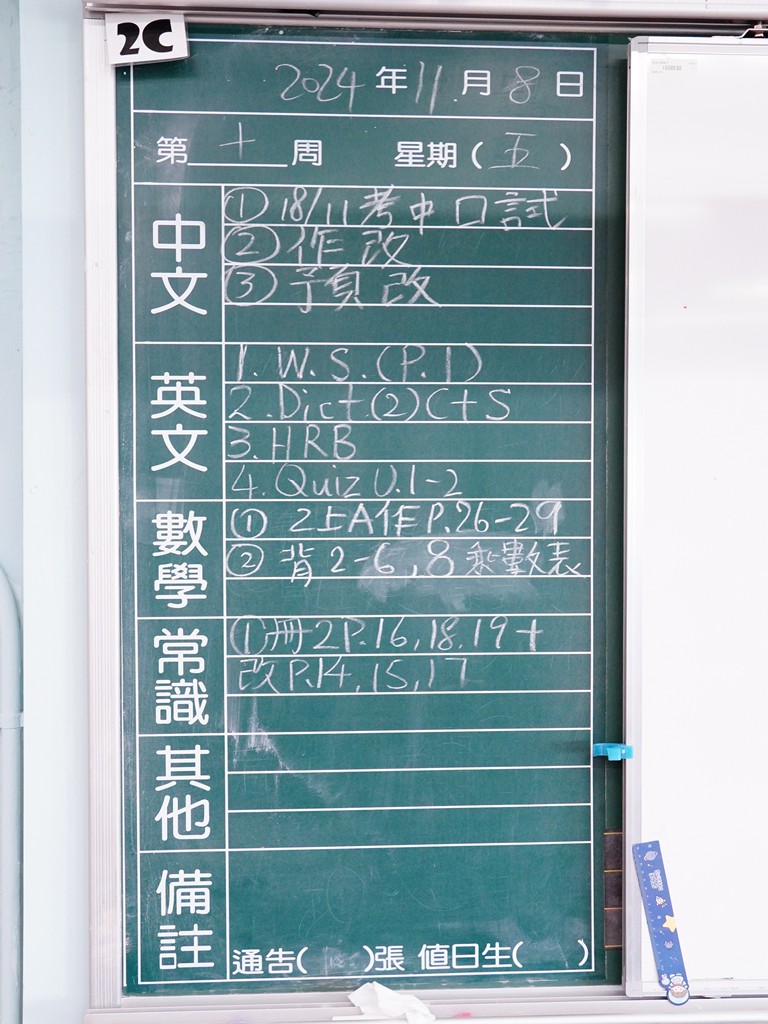 2C
2024年11月8日
第十周 星期(五)
中文
①18/11考中口試
②作改
③預改
英文
1. W.S.(P.1)
2. Dict(2)C+S
3. HRB
4. Quiz U.1-2
數學
① 2上A作P.26-29
② 背2-6,8乘數表
常識
①冊2P.16,18,19+
改P.14,15,17
其他
備註
通告( )張 值日生( )